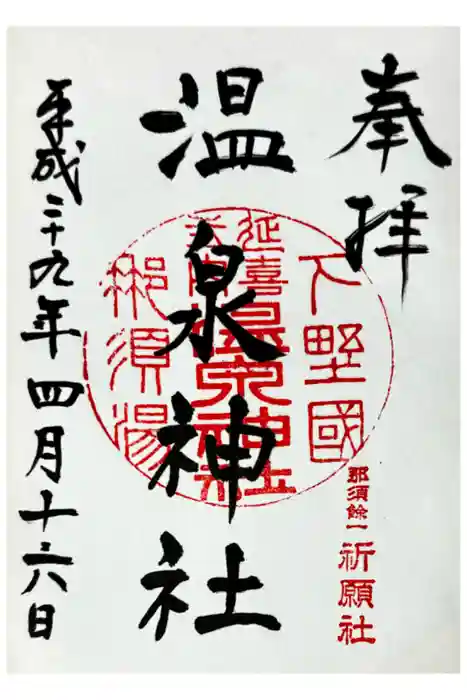 奉拝
下野國
延喜式内
温泉神社
那須湯
那須餘一
祈願社
温泉神社
平成二十九年四月十六日